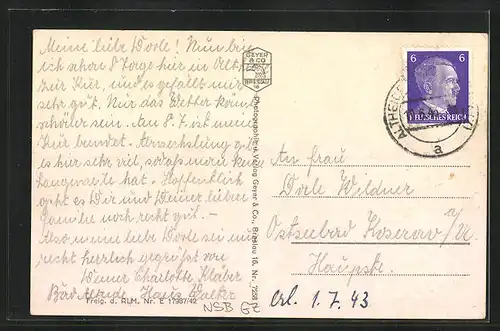 Meine liebe Dorle! Nun bin
ich schon 8 Tage hier in Alth.
zur Kur, und es gefällt mir
sehr gut. Nur das Wetter könnte
schöner sein. Am 8.7. ist meine
Kur beendet. Abwechslung gibt
es hier sehr viel, sodass man keine
Langeweile hat. Hoffentlich
geht es Dir und Deiner lieben
Familie noch recht gut. –
Also meine liebe Dorle sei nun
recht herzlich gegrüßt von
Deiner Charlotte Kläber
Bad Altheide, Haus Walter
Freig. d. RLM. Nr. E 17987/42
NSB GZ
GEYER
& CO
BRESLAU
16
Photographie u. Verlag Geyer & Co., Breslau 16, Nr. 7258
6 6
DEUTSCHES REICH
ALTHEIDE
a
An Frau
Dorle Wildner
Ostseebad Koserow a/U.
Hauptstr.
Erl. 1.7.43